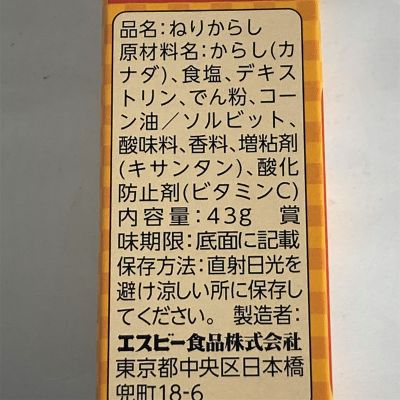 品名:ねりからし
原材料名:からし(カ
ナダ)、食塩、デキス
トリン、でん粉、コー
ン油/ソルビット、
酸味料、香料、増粘剤
(キサンタン)、酸化
防止剤(ビタミンC)
内容量:43g 賞
味期限:底面に記載
保存方法:直射日光を
避け涼しい所に保存し
てください。 製造者:
エスビー食品株式会社
東京都中央区日本橋
兜町18-6